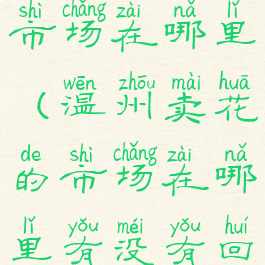 shì chǎng zài nǎ lǐ
市场在哪里
wēn zhōu mài huā
（温州卖花
de shì chǎng zài nǎ
的市场在哪
lǐ yǒu méi yǒu huí
里有没有回